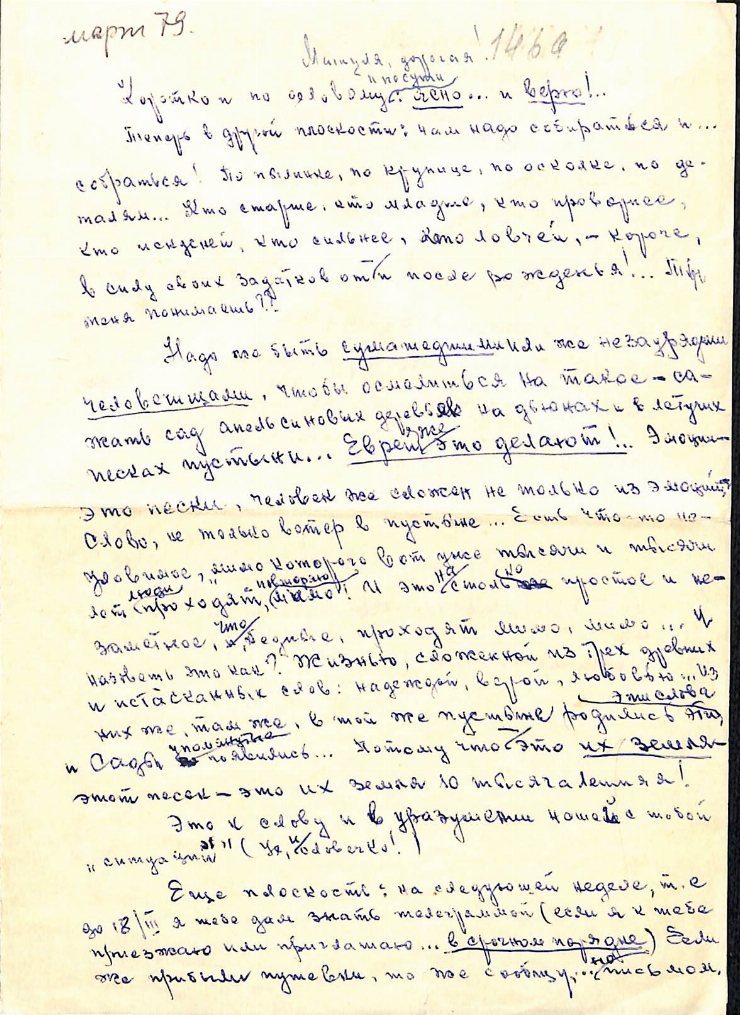 март 79.
Мишуля, дорогая! 146а
и по сути
Коротко и по деловому: ясно... и верю!..
Теперь в другой плоскости: нам надо собираться и...
собраться! По пылинке, по крупице, по осколке, по де-
талям... Кто старше, кто младше, кто проворнее,
кто искуней, кто сильнее, кто ловчей, – короче,
в силу своих задатков от и после рожденья!... Ты
меня понимаешь??
Надо же быть сумасшедшими или же незаурядными
человечищами, чтобы осмелиться на такое – са-
жать сад апельсиновых деревьев на дюнах и в летучих
песках пустыни... Евреи же это делают!.. Эмоции –
это пески, человек же сложен не только из эмоций,
Слово, не только ветер в пустыне... Есть что-то не-
уловимое, мимо которого вот уже тысячи и тысячи
лет люди проходят, повторяю мимо! И это на столько простое и не-
заметное, что бедные, проходят мимо, мимо... И
назвать это как? Жизнью, сложенной из трех древних
и истасканных слов: надеждой, верой, любовью... Из
них же, там же, в той же пустыне родились эти слова
и Сады упомянутые появились... Потому что это их земля –
этот песок – это их земля 10 тысячалетняя!
Это к слову и в уразумении нашей с тобой
„ситуации" (Ух, и словечко!)
Еще плоскость: на следующей неделе, т. е
до 18/III я тебе дам знать телеграммой (если я к тебе
приезжаю или приглашаю... в срочном порядке) Если
же прибыли путевки, то же сообщу,... но письмом.